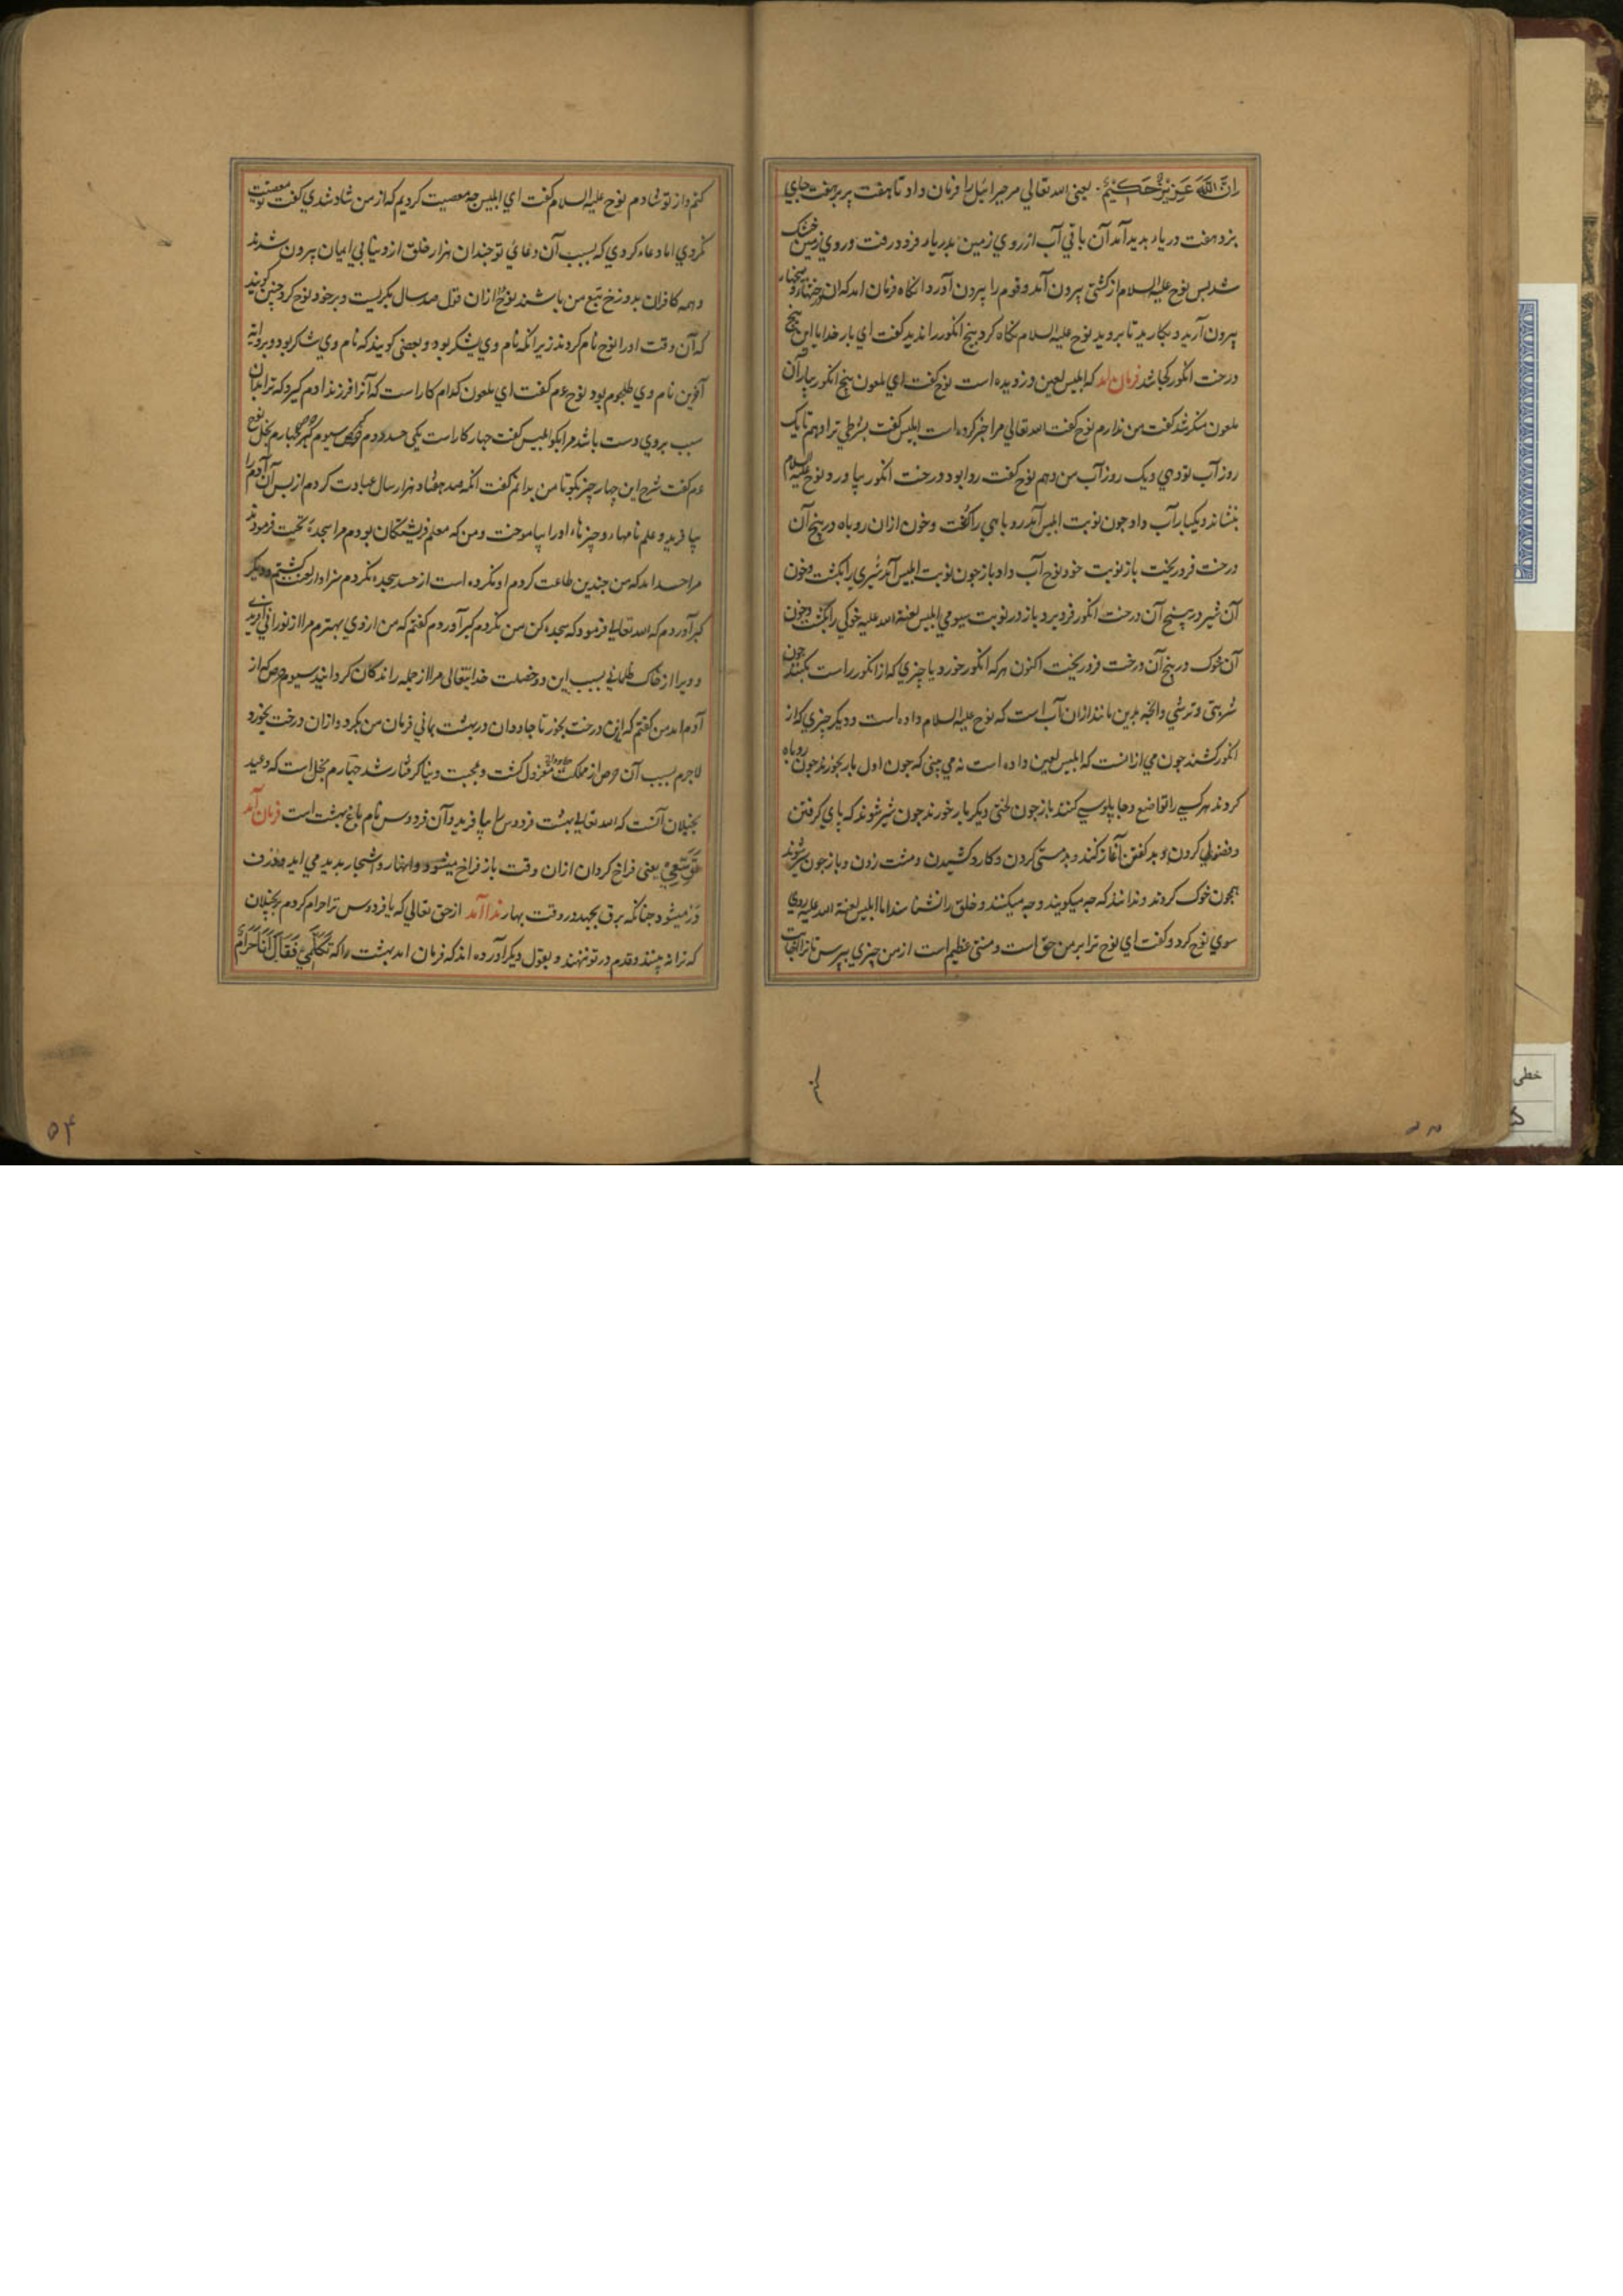 ان الله عزیز حکیم. یعنی الله تعالی مر جبرائیل را فرمان داد تا هفت پر بر هفت جای
بزد هفت دریاء بدید آمد آن باقی آب از روی زمین بدریا فرود رفت و روی زمین خشک
شد بس نوح علیه السلام از کشتی بیرون آمد و قوم را بیرون آورد و انکاه فرمان امد که ان درختها و بیخها
بیرون آرید و بکارید تا بروید نوح علیه السلام نکاه کرد بیخ انکور را ندید کفت ای بار خدایا این بیخ
درخت انکور کجا شد فرمان امد که ابلیس لعین دزدیده است نوح کفت ای ملعون بیخ انکور بیار آن
ملعون منکر شد کفت من ندارم نوح کفت الله تعالی مرا خبر کرده است ابلیس کفت بشرطی ترا دهم تا یک
روز آب تو دهی و یک روز آب من دهم نوح کفت روا بود درخت انکور بیاورد نوح علیه السلام
بنشاند و یکبار آب داد جون نوبت ابلیس آمد روباهی را بکشت و خون ازان روباه در بیخ آن
درخت فرو ریخت باز نوبت خود نوح آب داد باز جون نوبت ابلیس آمد شیری را بکشت و خون
آن شیر در بیخ آن درخت انکور فرو برد باز در نوبت سیومی ابلیس لعنة الله علیه خوکی را بکشت و خون
آن خوک در بیخ آن درخت فرو ریخت اکنون هر که انکور خورد یا چیزی که از انکور راست بکنند جون
شربتی و ترشی و انچه بدین مانند ازان آب است که نوح علیه السلام داده است و دیکر چیزی که از
انکور کشند جون می از انست که ابلیس لعین داده است نه می بینی که جون اول بار بخورند جون روباه
کردند هر کسی را تواضع و جابلوسی کنند باز جون لختی دیکر بار خورند جون شیر شوند که بای کرفتن
و فضولی کردن و بد کفتن آغاز کنند و بدمستی کردن و کارد کشیدن و مشت زدن و باز جون شوند
همجون خوک کردند و ندانند که جه میکویند و جه میکنند و خلق را نشناسند اما ابلیس لعنة الله علیه روی
سوی نوح کرد و کفت ای نوح ترا بر من حق است و منتی عظیم است از من چیزی ببرس تا ترا اجابت
کنم و از تو شادم نوح علیه السلام کفت ای ابلیس جه معصیت کردیم که از من شاد شدی کفت تو معصیت
نکردی اما دعاء کردی که بسبب آن دعائی تو جندان هزار خلق از دنیا بی ایمان بیرون شدند
و همه کافران بدوزخ تبع من باشند نوح ازان قول صد سال بکریست و بر خود نوح کرد جنین کویند
که آن وقت او را نوح نام کردند زیرا نکه نام وی یشکر بود و بعضی کویند که نام وی شاکر بود و بروایة
نام وی بود نوح عم کفت ای ملعون کدام کار است که آنرا فرزند ادم کیرد که ترا بدان
سبب بروی دست باشد مرا بکو ابلیس کفت جهار کار است یکی حسد دوم سیوم جهارم بخل نوح
عم کفت شرح این چهار چیز بکو تا من بدانم کفت انکه صد هفتاد هزار سال عبادت کردم از بس آن آدم را
بیافرید و علم نامها و چیزهاء او را بیاموخت و من که معلم فریشتکان بودم مرا سجده تحیت فرمودند
مرا حسد امد که من جندین طاعت کردم او نکرده است از حسد سجده نکردم سزاوار لعنت کشتم و دیکر
کبر آوردم که الله تعالی فرمود که سجده کن من نکردم کبر آوردم کفتم که من از وی بهترم مرا از نورانی آفریدی
و ویرا از خاک ظلمانی بسبب این دو خصلت خدایتعالی مرا از جمله راندکان کردانید سیوم حرص که از
آدم امد من کفتم که ازین درخت بخور تا جاودان در بهشت بمانی فرمان من بکرد و ازان درخت بخورد
لاجرم بسبب آن حرص از مملکت جاودانی معزول کشت و بمحبت دنیا کرفتار شد چهارم بخل است که وعید
بخیلان آنست که الله تعالی بهشت فردوس را بیافرید و آن فردوس نام باغ بهشت است فرمان آمد
یعنی فراخ کردان ازان وقت باز فراخ میشود و انهار و اشجار بدید می اید
میشود جنانکه برق بجهد در وقت بهار ندا آمد از حق تعالی که یا فردوس ترا حرام کردم بر بخیلان
که ترا نه بینند و قدم در تو ننهند و بقول دیکر آورده اند که فرمان امد بهشت را که تکلمی فقال انا حرام
۵۴
خطی